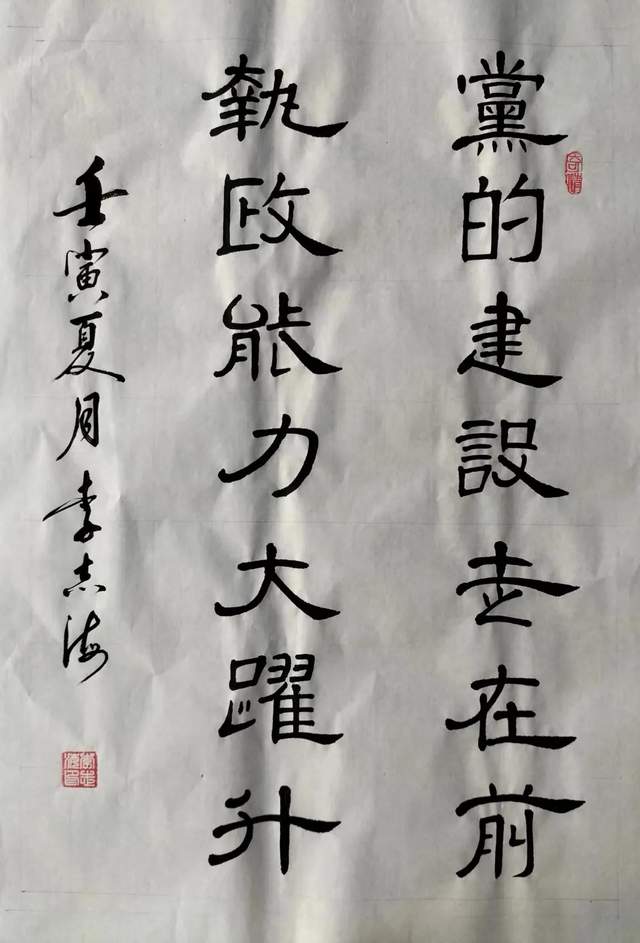 黨的建設走在前
執政能力大躍升
壬寅夏月李志海